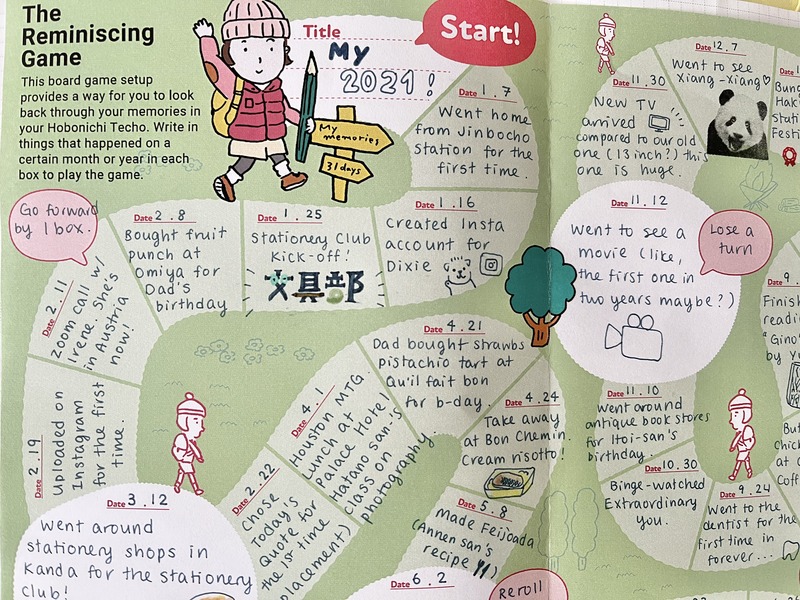 The
Reminiscing
Game
This board game setup
provides a way for you to look
back through your memories in
your Hobonichi Techo. Write in
things that happened on a
certain month or year in each
box to play the game.
Title
My
2021!
Start!
My
memories
31 days
Date 1.7
Went home
from Jinbocho
station for the
first time.
Date 1.16
Created Insta
account for
Dixie
Date 1.25
Stationery Club
Kick-off!
文具部
Date 2.8
Bought fruit
punch at
Omiya for
Dad's
birthday
Go forward
by 1 box.
Date 2.11
Zoom call w/
Irene. She's
in Austria
now!
Date 2.19
Uploaded on
Instagram
for the first
time.
Date 3.12
Went around
stationery shops in
Kanda for the stationery
club!
Date 2.22
Chose
Today's
Quote for
the 1st time
placement)
Date 4.1
Houston MTG.
Lunch at
Palace Hotel
Hatano san's
class on
photography
Date 4.21
Dad bought strawbs
pistachio tart at
Qu'il fait bon
for b-day.
Date 4.24
Take away
at Bon Chemin.
Cream risotto!
Date 5.8
Made Feijoada
(Annen san's
recipe
Date 6.2
Reroll
Date 9.24
Went to the
dentist for the
first time in
forever...
Date 10.30
Binge-watched
Extraordinary
you.
Date 11.10
Went around
antique book stores
for Itoi-san's
birthday.
Date 11.12
Went to see a
movie (like,
the first one in
two years maybe?)
Lose a
turn
Date 11.30
New TV
arrived
compared to our old
one (13 inch?) this
one is huge.
Date 12.7
Went to see
Xiang-Xiang♡